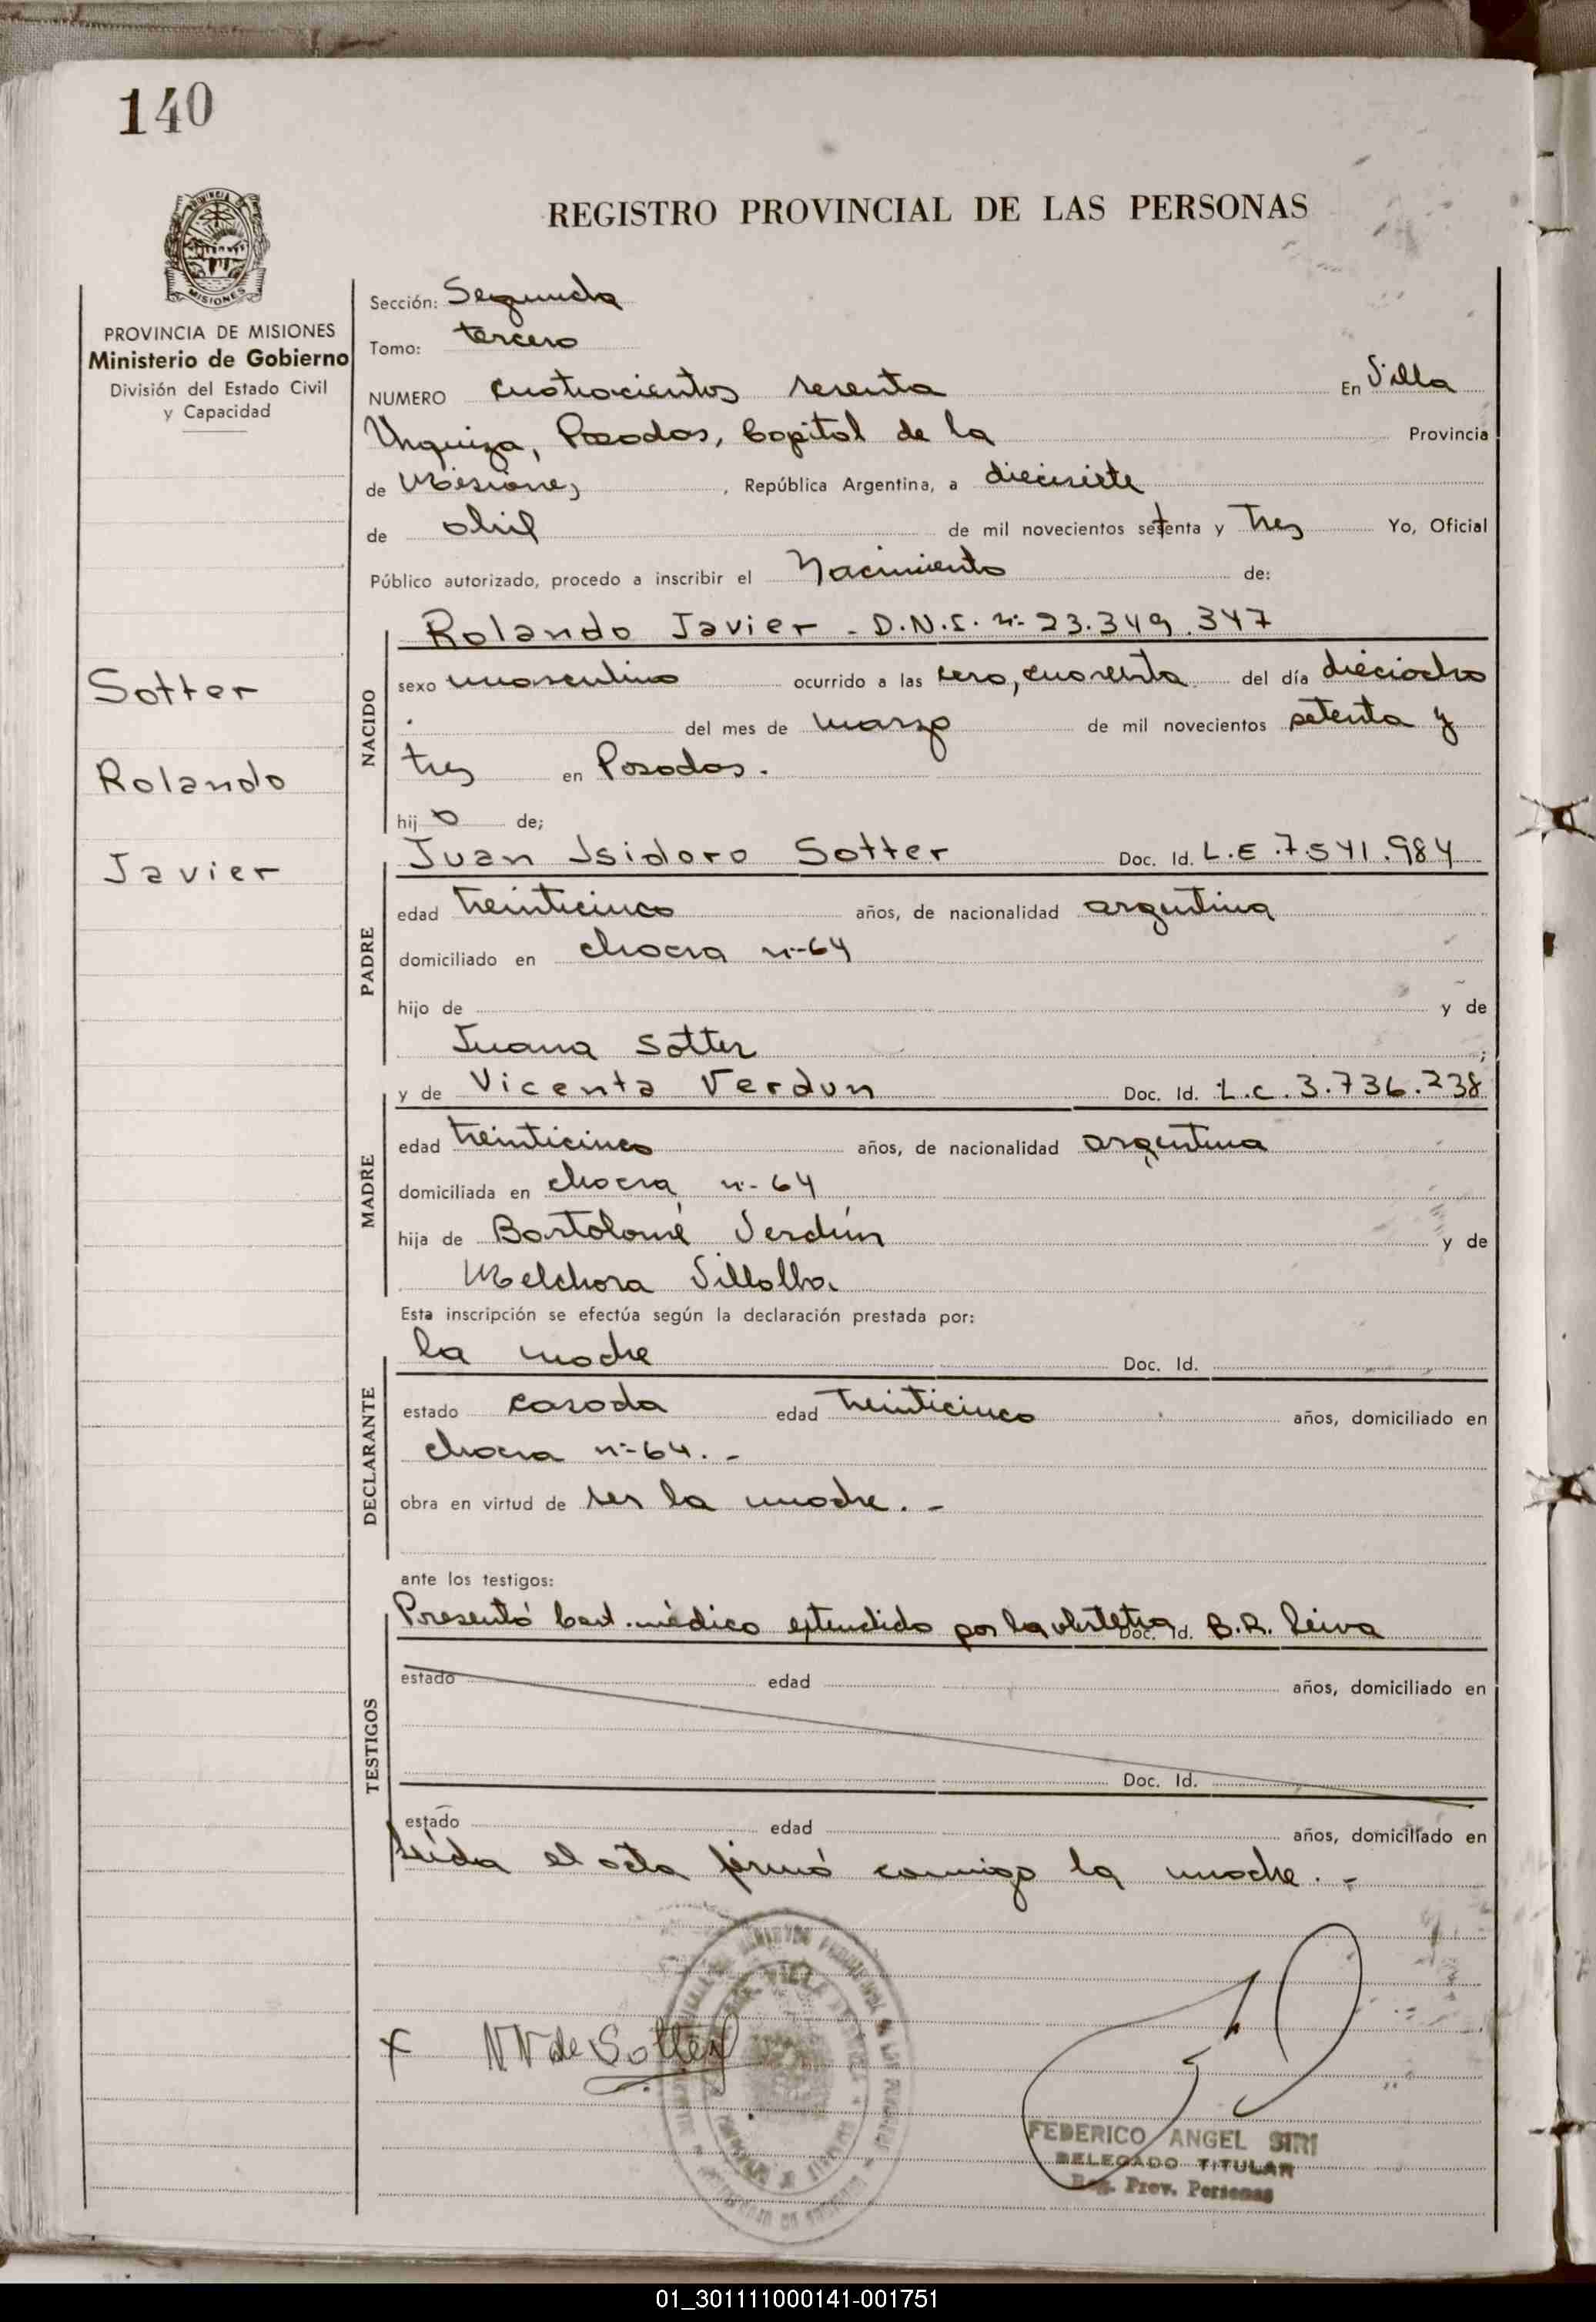 140
REGISTRO PROVINCIAL DE LAS PERSONAS
MISIONES
PROVINCIA DE MISIONES
Ministerio de Gobierno
División del Estado Civil
y Capacidad
Sotter
Rolando
Javier
Sección: Segunda
Tomo: tercero
NUMERO cuatrocientos sesenta En Villa
Urquiza, Posadas, Capital de la Provincia
de Misiones, , República Argentina, a diecisiete
de abril de mil novecientos setenta y tres Yo, Oficial
Público autorizado, procedo a inscribir el Nacimiento de:
NACIDO
Rolando Javier - D.N.I. nº 23.349.347
sexo masculino ocurrido a las cero, cuarenta del día dieciocho
del mes de marzo de mil novecientos setenta y
tres en Posadas.
hijo de;
PADRE
Juan Isidoro Sotter Doc. Id. L.E.7.541.984
edad treinticinco años, de nacionalidad argentina
domiciliado en chacra nº 64
hijo de y de
Juana Sotter ;
MADRE
y de Vicenta Verdun Doc. Id. L.C. 3.736.238
edad treinticinco años, de nacionalidad argentina
domiciliada en chacra nº 64
hija de Bartolomé Verdún y de
Melchora Villalba.
Esta inscripción se efectúa según la declaración prestada por:
DECLARANTE
la madre Doc. Id.
estado casada edad treinticinco años, domiciliado en
chacra nº 64. -
obra en virtud de ser la madre. -
ante los testigos:
TESTIGOS
Presentó Cert. médico extendido por la obstetra Doc. Id. B.R. Leiva
estado edad años, domiciliado en
Doc. Id.
estado edad años, domiciliado en
Leída el acta firmó conmigo la madre. -
x de Sotter
FEDERICO ANGEL SIRI
DELEGADO TITULAR
Reg. Prov. Personas
01_301111000141-001751